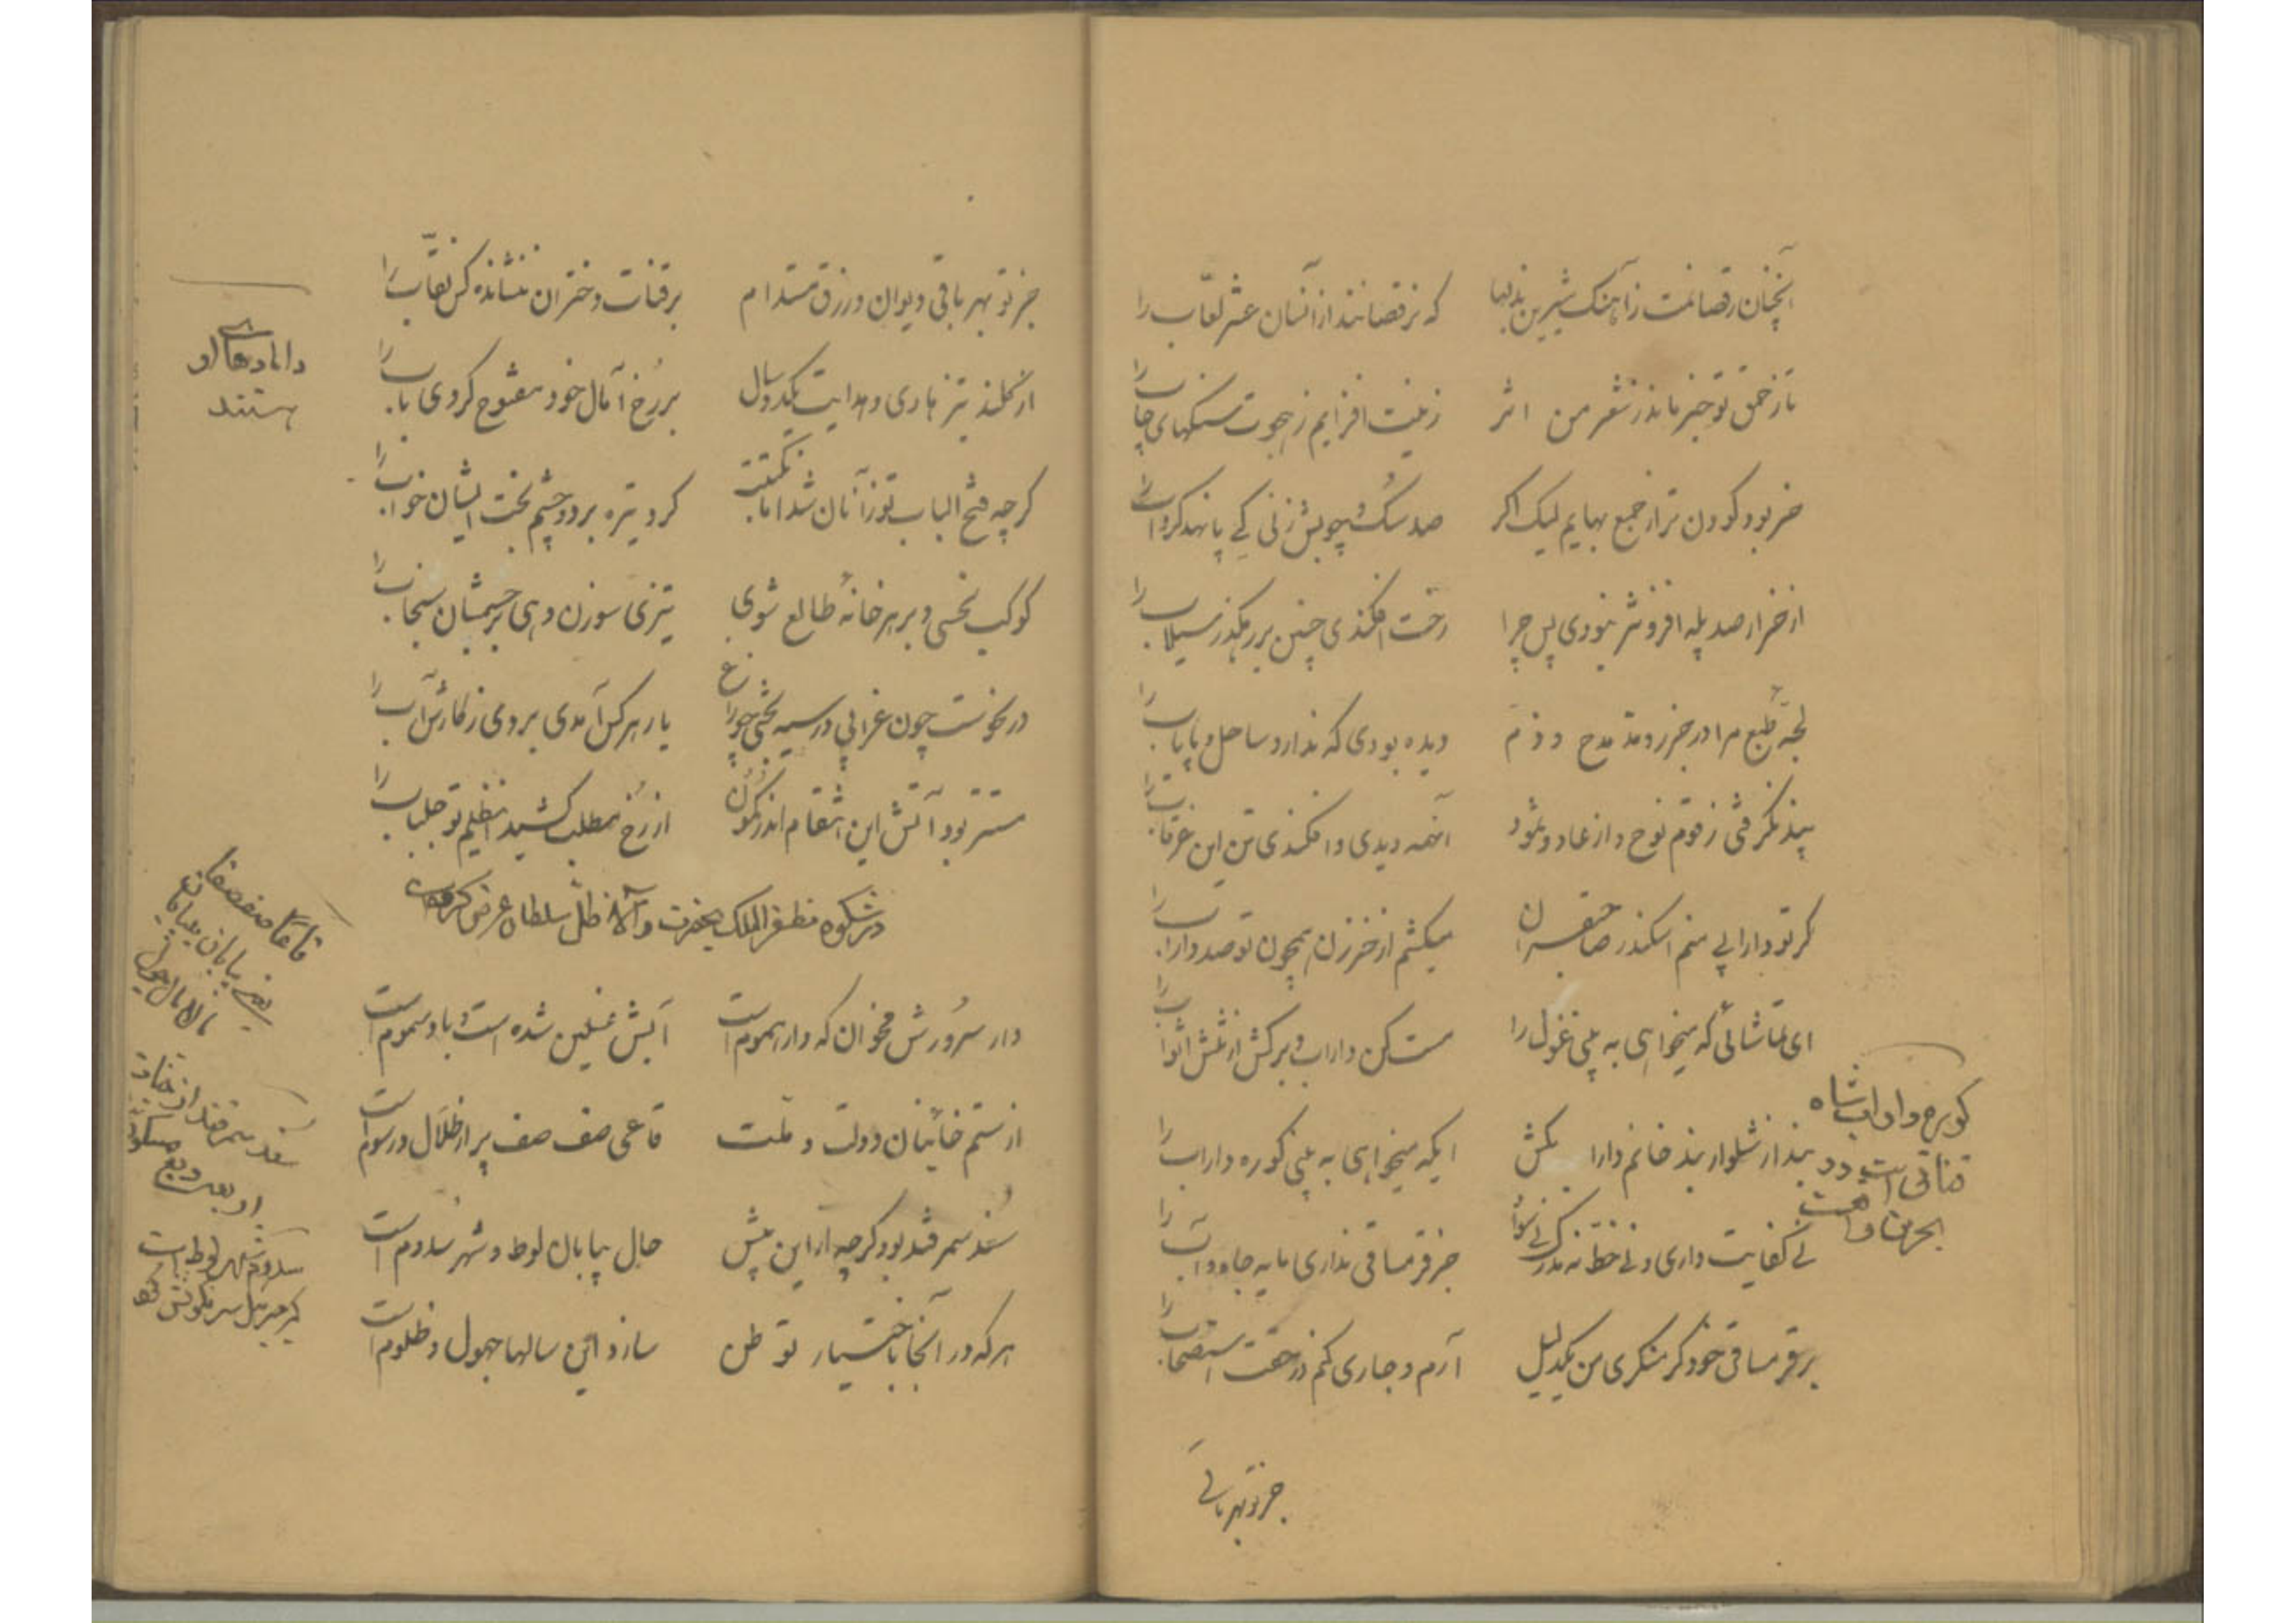 آنچنان رقصانمت زآهنک شیرین بذلها که نرقصانند ازآنسان عشر لعّاب را
تا زحمق تو جز ماند ز شعر من اثر زینت افزایم ز هجوت سنکهای را
خر بود کودن تر از جمع بهایم لیک اکر صد سکش چوبش زنی کی پا نهد را
از خر ار صد پله افزونتر نبودی پس چرا رخت افکندی چنین بر رهکذر سیلاب را
لجه طبع مرا در جزر و مد مدح و ذم دیده بودی که ندارد ساحل و پایاب را
پند نکرفتی ز قوم نوح و از عاد و ثمود اینهمه دیدی و افکندی تن این غرقاب را
کر تو دارابی منم اسکندر صاحبقران میکشم از خنجر زن همچون تو صد داراب را
ای تماشائی که میخواهی به بینی غول را مست کن داراب و برکش از تنش اثواب را
بند از شلوار بند خانم دارا بکش ایکه میخواهی به بینی کوره داراب را
نی کفایت داری و نی خط نه مدرک نی سواد جز قرمساقی نداری مایه جاه و آب را
بر قرمساقی خود کر منکری من یکدلیل آرم و جاری کنم در حقت استصحاب را
کوره داراب شاه
قناتی است در
جز تو بهر باقی
جز تو بهر باقی دیوان و رزق مستدام بر قنات دختران ننشانده کس نقاب را
از کلند تیز هادی و هدایت یکدوسال بر رخ آمال خود مفتوح کردی باب را
کرچه فتح الباب تو زآنان شد اما نکبتت کرد تیره بر دو چشم بخت ایشان خواب را
کوکب نحسی و بر هر خانه طالع شوی تیزی سوزن دهی بر چشمشان سنجاب را
در نحوست چون غرابی در سیه بختی چو زاغ یار هر کس آمدی بردی ز کارش آب را
مستتر بود آتش این انتقام اندر کمون از رخ مطلب کشید این ظلم تو جلباب را
دامادهای او
هستند
در شکوه مظفرالملک بحضرت والا ظل سلطان عرض کرده
دار سرورش مخوان که دار هموم است آبش غسلین شده است و باد سموم است
از ستم خائنان دولت و ملت قاعی صف صف پر از ظلال و رسوم است
سغد سمرقند بود کرچه ازاین پیش حال بیابان لوط و شهر سدوم است
هرکه در آنجا باختیار توطن سازد این سالها جهول و ظلوم است
قاعا صفصفا
یعنی بیابان
سغد سمرقند از جنات
اربعه
سدوم شهر لوط است
که جبرئیل سرنکونش کرد